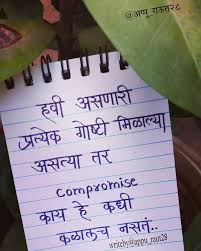 @अप्पू_राऊत२८
हवी असणारी
प्रत्येक गोष्टी मिळाल्या
असत्या तर
compromise
काय हे कधी
कळालच नसतं..
writeby@appu_raut28